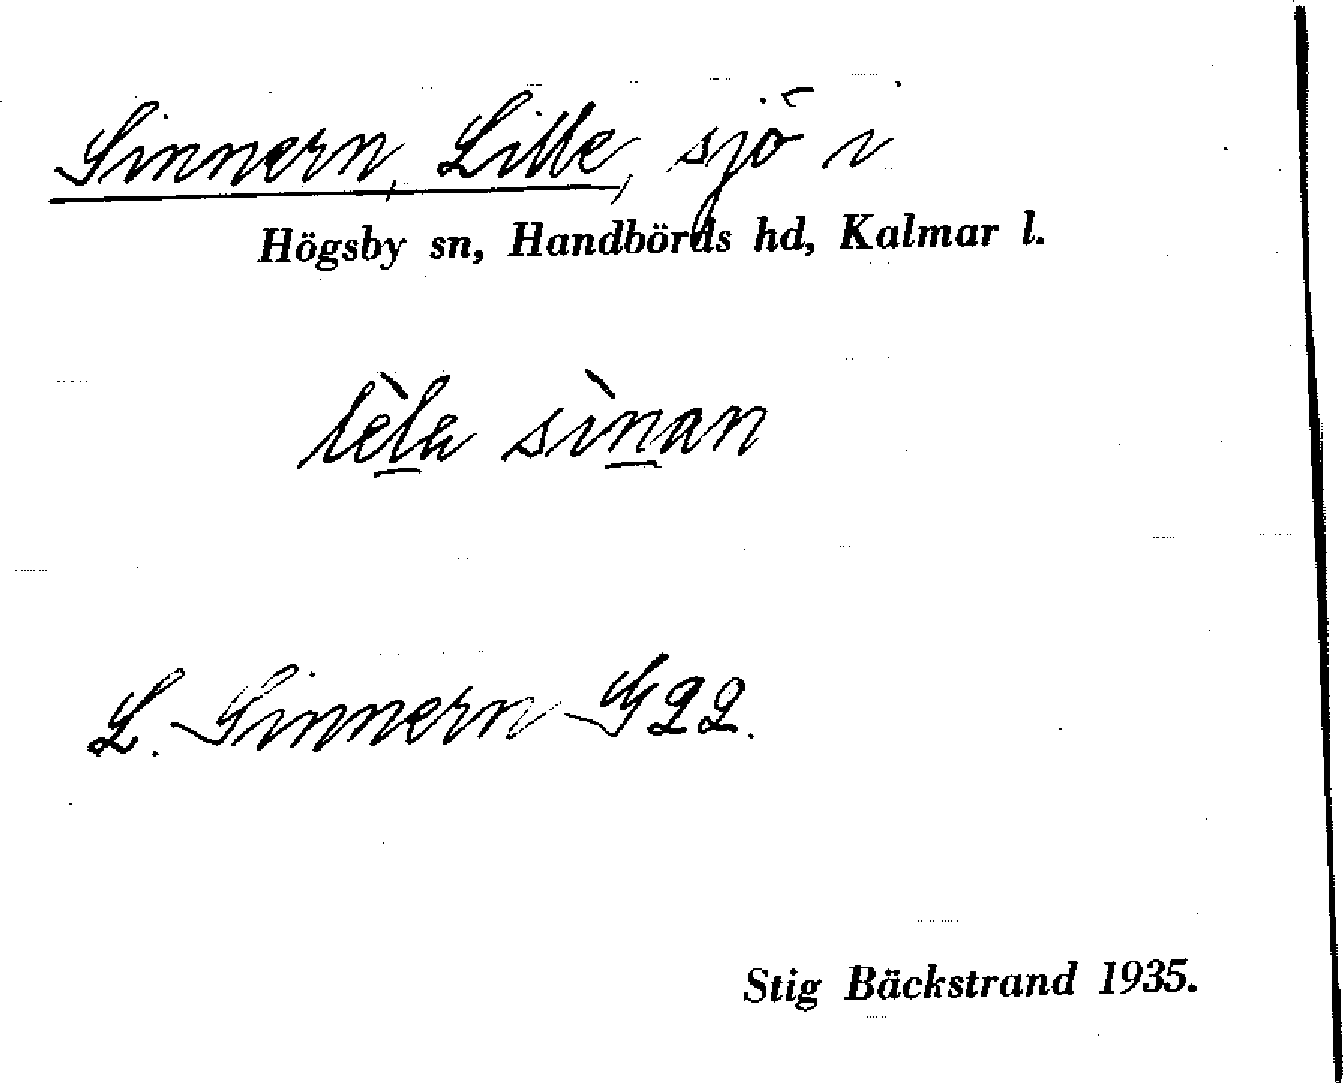 Sinnern, Lille, sjö i
Högsby sn, Handbörds hd, Kalmar l.
lèla sìnan
L. Sinnern G22.
Stig Bäckstrand 1935.